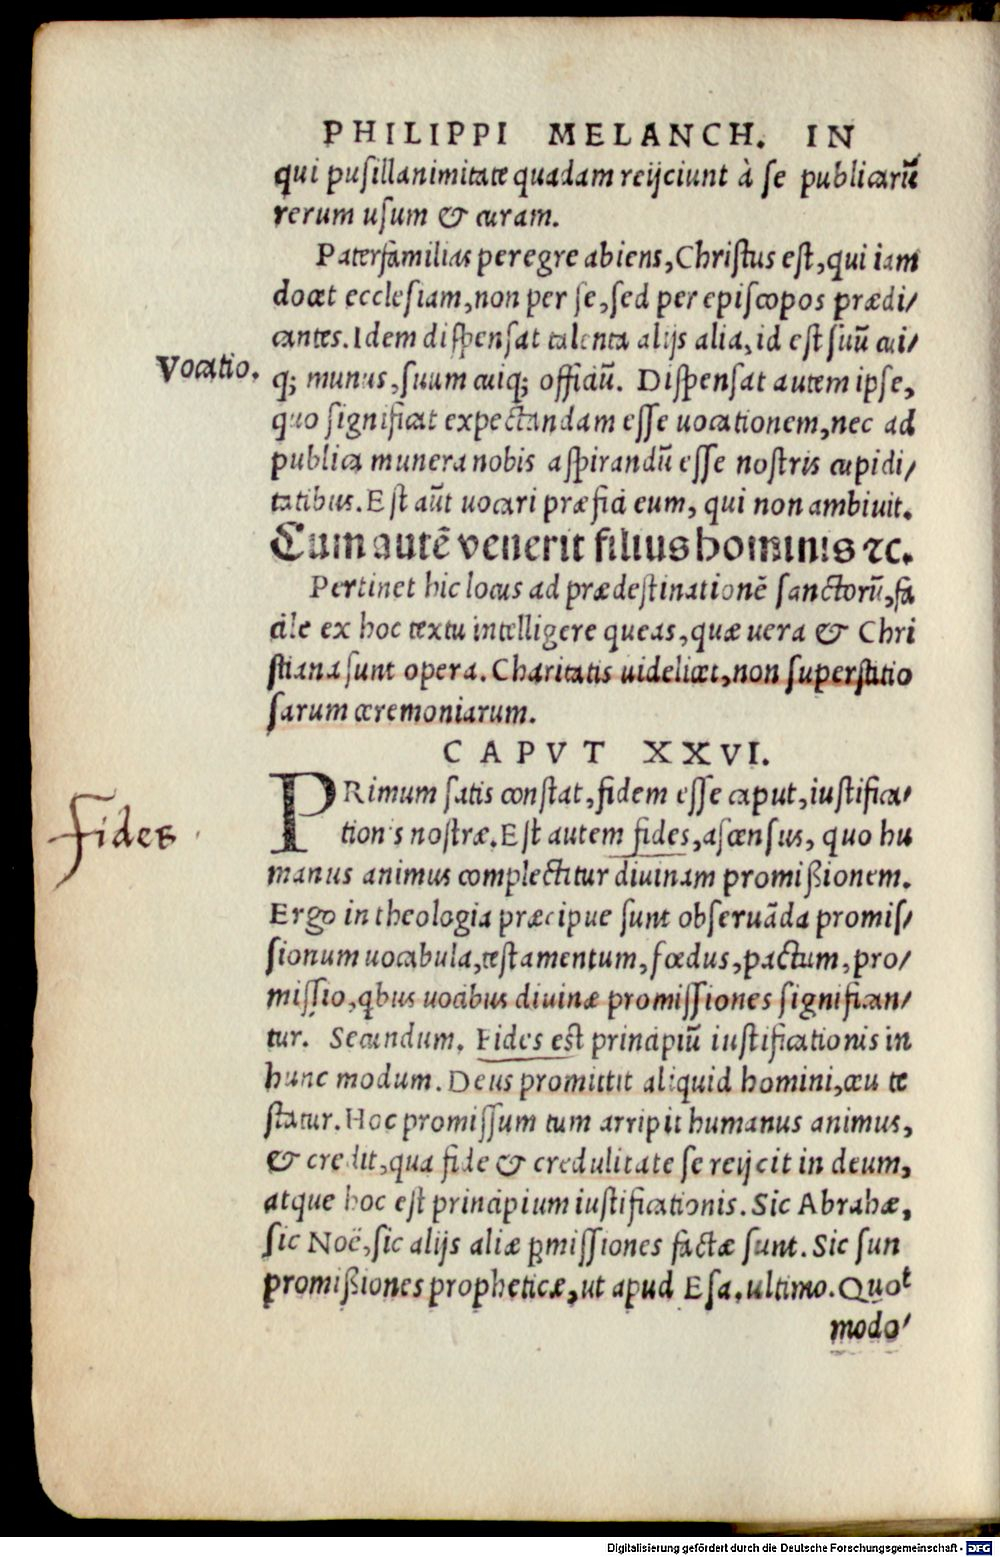 PHILIPPI MELANCH. IN
qui pusillanimitate quadam reijciunt à se publicarũ
rerum usum & curam.
Paterfamilias peregre abiens, Christus est, qui iam
docet ecclesiam, non per se, sed per episcopos prædi/
cantes. Idem dispensat talenta alijs alia, id est suũ cui/
Vocatio.
q; munus, suum cuiq; officiũ. Dispensat autem ipse,
quo significat expectandam esse uocationem, nec ad
publica munera nobis aspirandũ esse nostris cupidi/
tatibus. Est aũt uocari præfici eum, qui non ambiuit.
Cum autẽ venerit filius hominis ⁊c.
Pertinet hic locus ad prædestinationẽ sanctorũ, fa
cile ex hoc textu intelligere queas, quæ uera & Chri
stiana sunt opera. Charitatis uidelicet, non superstitio
sarum ceremoniarum.
CAPVT XXVI.
PRimum satis constat, fidem esse caput, iustifica/
Fides
tionis nostræ. Est autem fides, ascensus, quo hu
manus animus complectitur diuinam promißionem.
Ergo in theologia præcipue sunt obseruãda promis/
sionum uocabula, testamentum, fœdus, pactum, pro/
missio, qbus uocibus diuinæ promissiones significan/
tur. Secundum. Fides est principiũ iustificationis in
hunc modum. Deus promittit aliquid homini, ceu te
statur. Hoc promissum tum arripit humanus animus,
& credit, qua fide & credulitate se reijcit in deum,
atque hoc est principium iustificationis. Sic Abrahæ,
sic Noë, sic alijs aliæ ꝓmissiones factæ sunt. Sic sun
promißiones propheticæ, ut apud Esa. ultimo. Quot
modo/
Digitalisierung gefördert durch die Deutsche Forschungsgemeinschaft - DFG